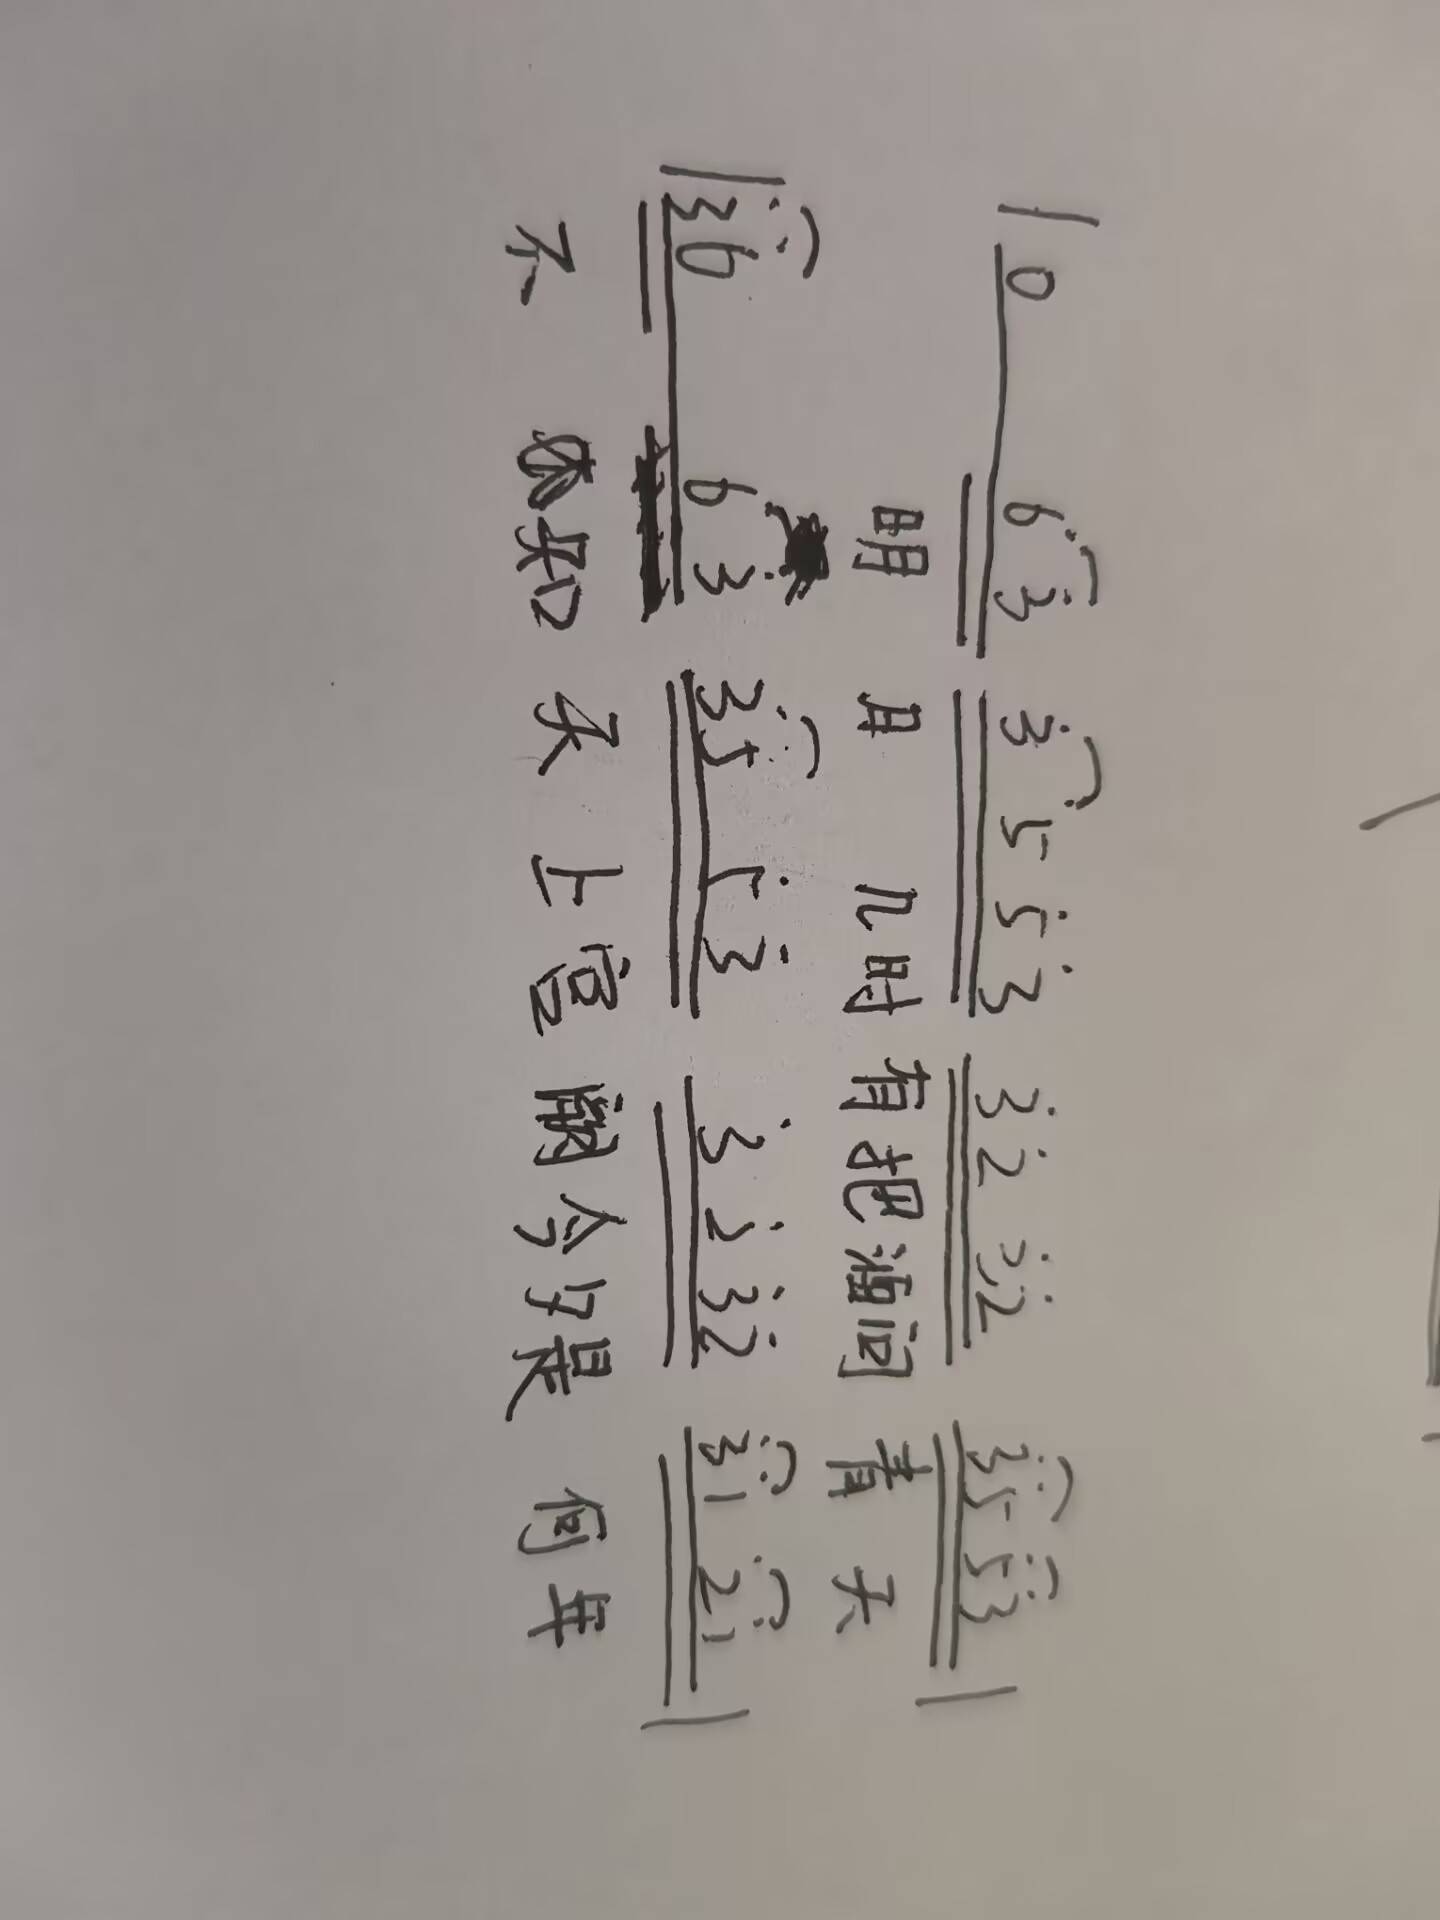 | 0 6 3 3 5 5 3 3 2 3 2 3 5 5 3 |
明月几时有把酒问青天
| 3 6 6 3 3 5 5 3 3 2 3 2 3 1 2 1 |
不知天上宫阙今夕是何年